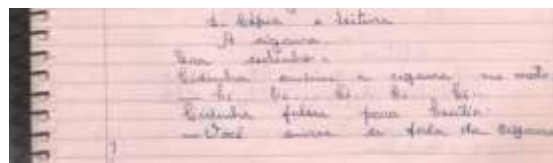 1- Cópia e leitura
A cigarra.
Era cedinho.
Cidinha ouviu a cigarra na mata
— Ci ci ci. ci. ci.
Cidinha falou para Cecília.
— Você ouviu a fala da cigarra